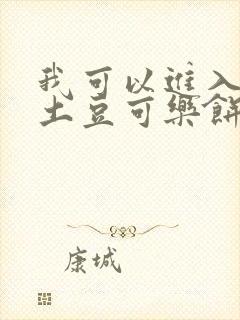 我可以進入
土豆可樂餅
康城